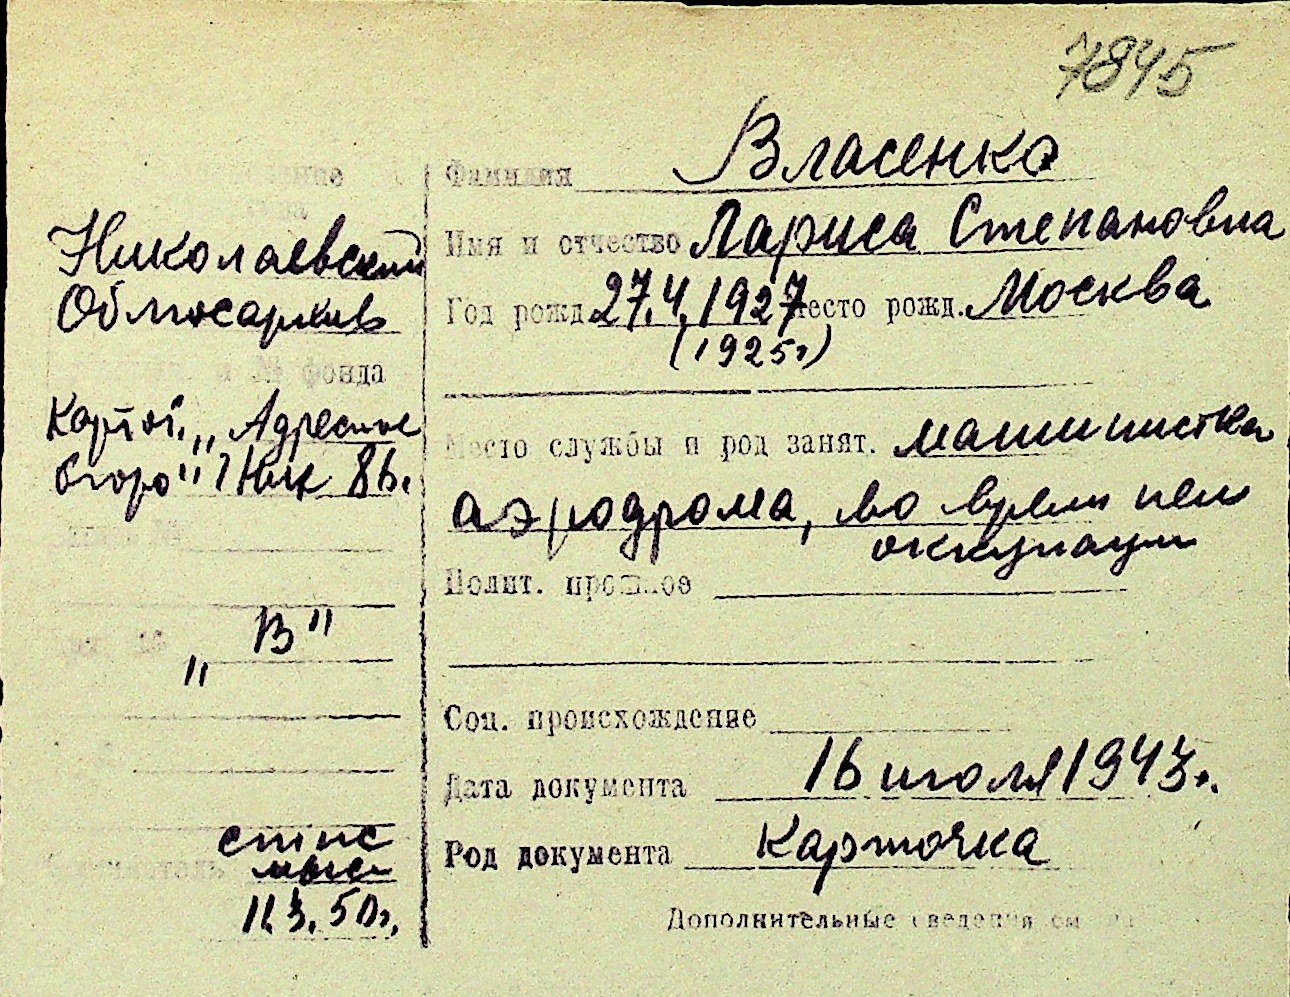 7845
Фамилия Власенко
Николаевский
Имя и отчество Лариса Степановна
Облгосархив
Год рожд. 27.4.1927 Место рожд. Москва
(1925г)
и № фонда
Карт. „Адресное
бюро"
Место службы и род занят. машинистка
аэродрома, во время нем
оккупации
Полит. прошлое
„В"
Соц. происхождение
Дата документа 16 июля 1943г.
Род документа Карточка
11.3.50г.
Дополнительные сведения см